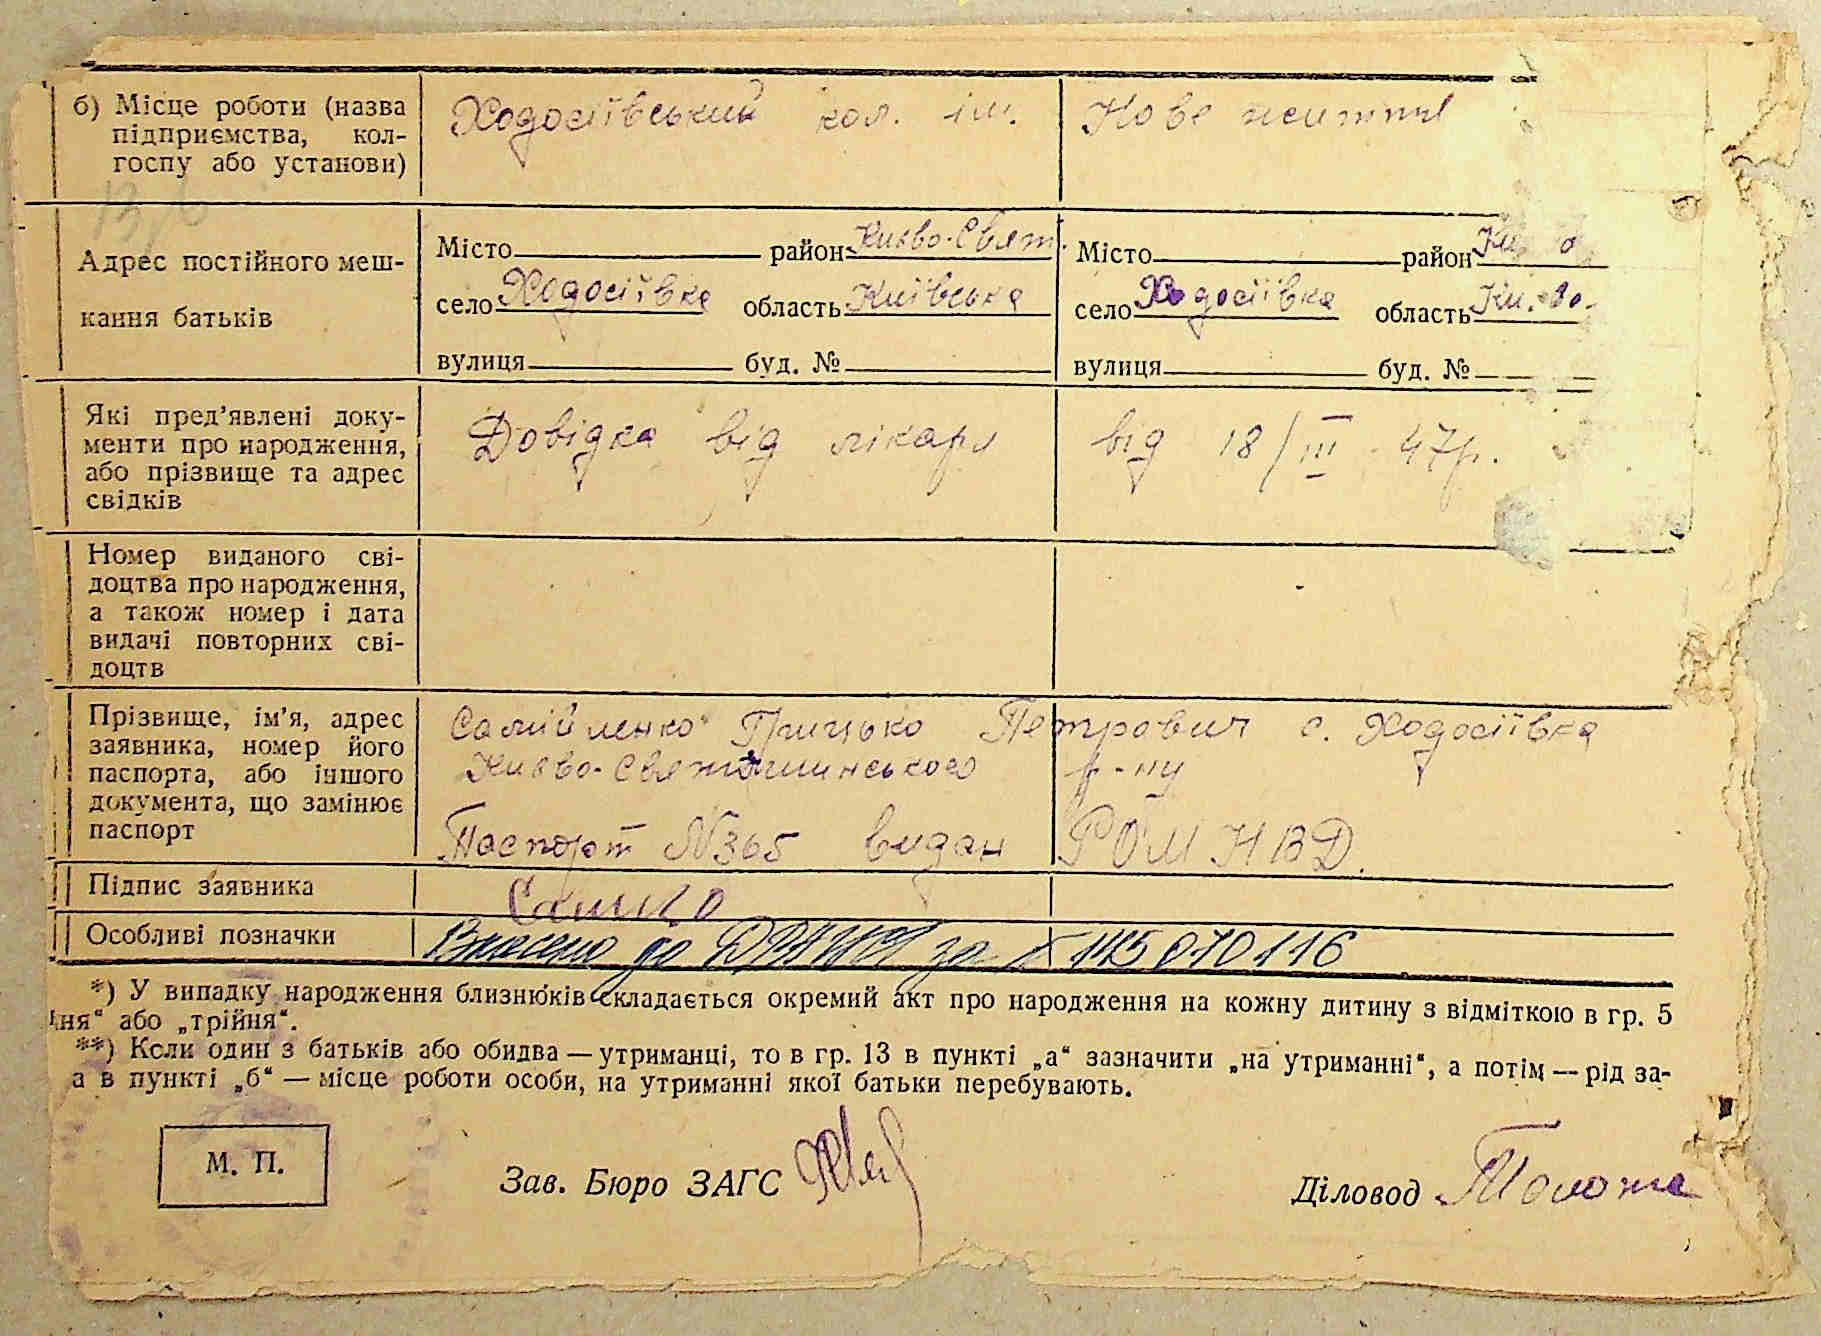 б) Місце роботи (назва підприємства, кол-госпу або установи)
Ходосіївський кол. ім. Нове життя
Адрес постійного меш-
кання батьків
Місто район Києво-Свят. Місто район
село Ходосіївка область Київська село Ходосіївка область
вулиця буд. № вулиця буд. №
Які пред'явлені доку-
менти про народження,
або прізвище та адрес
свідків
Довідка від лікаря від 18/III 47р.
Номер виданого сві-
доцтва про народження,
а також номер і дата
видачі повторних сві-
доцтв
Прізвище, ім'я, адрес
заявника, номер його
паспорта, або іншого
документа, що замінює
паспорт
Самійленко Грицько Петрович с. Ходосіївка
Києво-Святошинського р-ну
Паспорт №365 видан РОМ НВД.
Підпис заявника
Особливі позначки Внесено до ДРАЦСГ за № 145070116
*) У випадку народження близнюків складається окремий акт про народження на кожну дитину з відміткою в гр. 5
ня" або „трійня".
**) Коли один з батьків або обидва — утриманці, то в гр. 13 в пункті „а" зазначити „на утриманні", а потім — рід за-
а в пункті „б" — місце роботи особи, на утриманні якої батьки перебувають.
М. П.
Зав. Бюро ЗАГС
Діловод